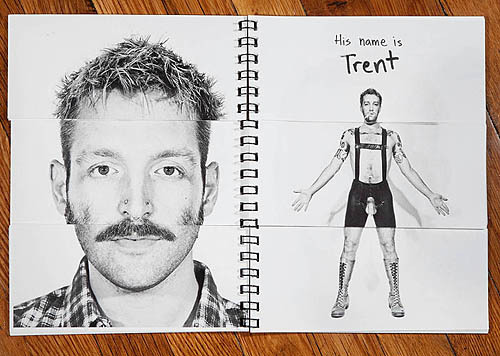 His name is
Trent